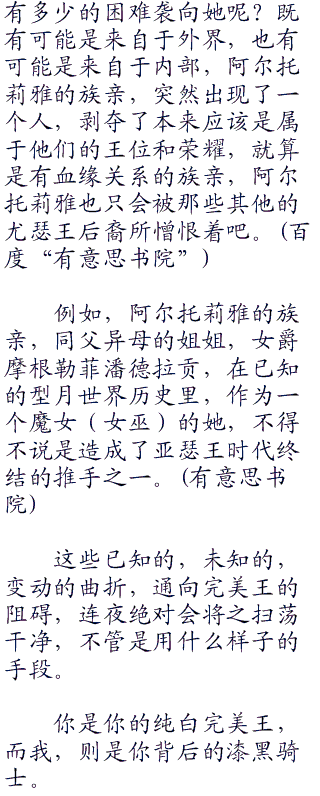 有多少的困难袭向她呢？既
有可能是来自于外界，也有
可能是来自于内部，阿尔托
莉雅的族亲，突然出现了一
个人，剥夺了本来应该是属
于他们的王位和荣耀，就算
是有血缘关系的族亲，阿尔
托莉雅也只会被那些其他的
尤瑟王后裔所憎恨着吧。(百
度“有意思书院”)
例如，阿尔托莉雅的族
亲，同父异母的姐姐，女爵
摩根勒菲潘德拉贡，在已知
的型月世界历史里，作为一
个魔女（女巫）的她，不得
不说是造成了亚瑟王时代终
结的推手之一。(有意思书
院)
这些已知的，未知的，
变动的曲折，通向完美王的
阻碍，连夜绝对会将之扫荡
干净，不管是用什么样子的
手段。
你是你的纯白完美王，
而我，则是你背后的漆黑骑
士。